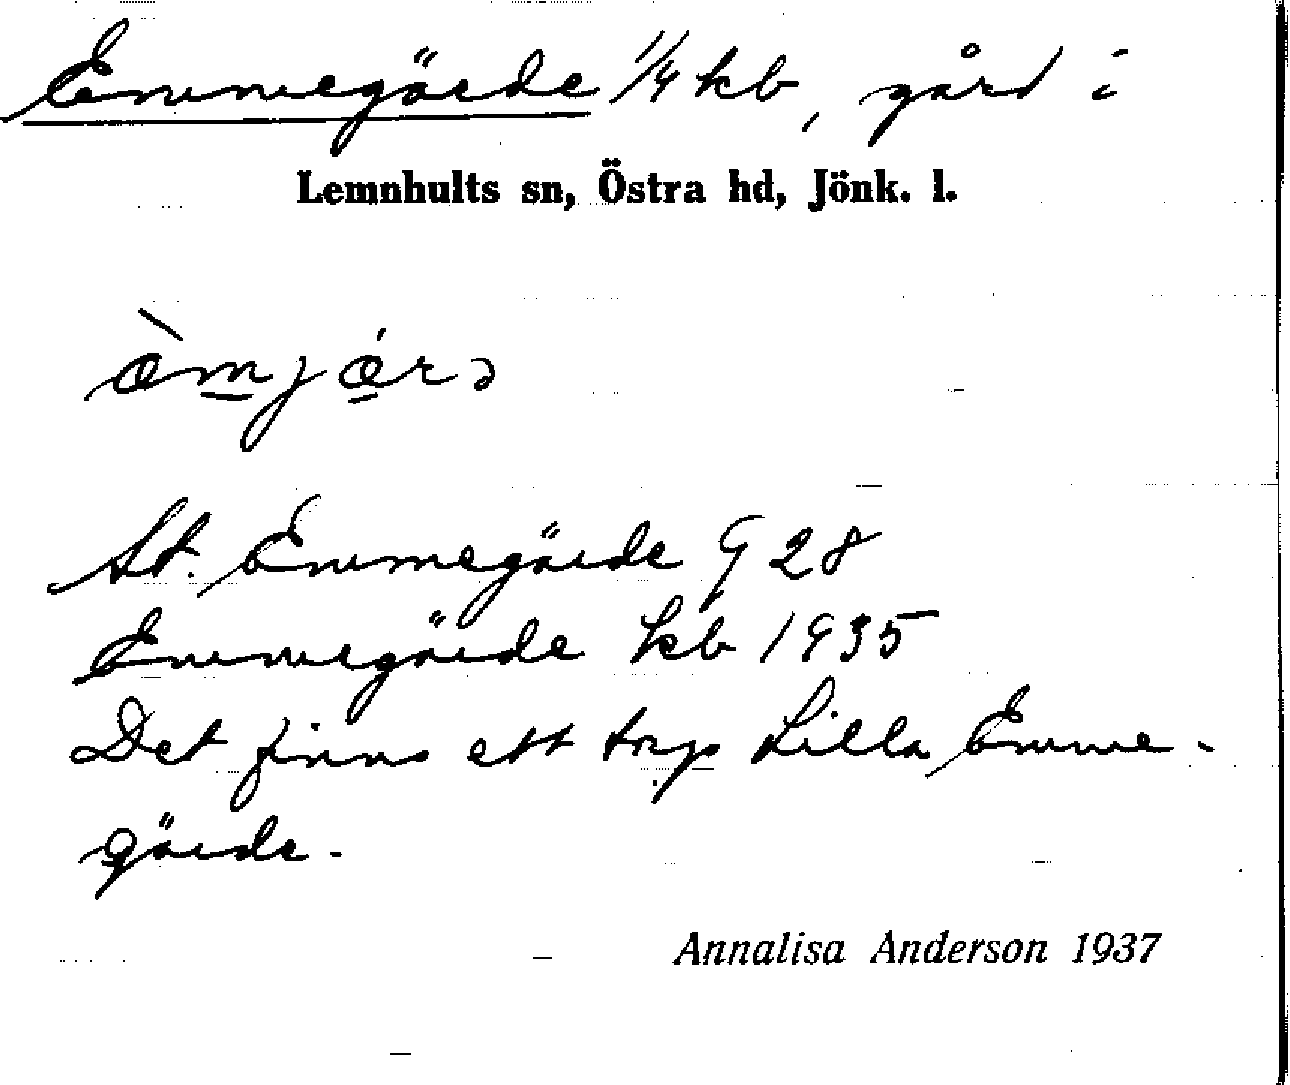 Emmegärde 1/4 kb, gård i
Lemnhults sn, Östra hd, Jönk. l.
æ̀mjǽrə
St. Emmegärde G 28
Emmegärde kb 1935
Det finns ett torp Lilla Emme-
gärde.
Annalisa Anderson 1937